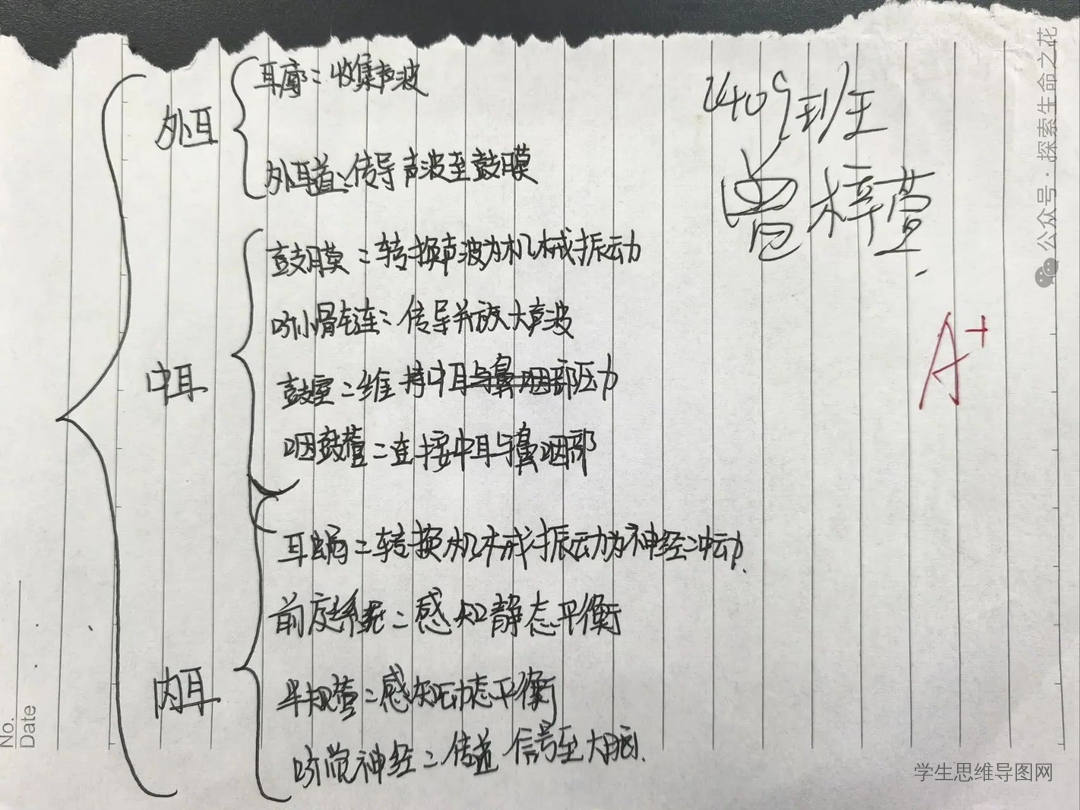 外耳
耳廓：收集声波
外耳道：传导声波至鼓膜
中耳
鼓膜：转换声波为机械振动
听小骨链：传导并放大声波
鼓室：维持中耳与鼻咽部压力
咽鼓管：连接中耳与鼻咽部
内耳
耳蜗：转换机械振动为神经冲动
前庭系统：感知静态平衡
半规管：感知动态平衡
听觉神经：传送信号至大脑.
2409班
曾梓萱.
A+
公众号·探索生命之花
No.
Date
学生思维导图网